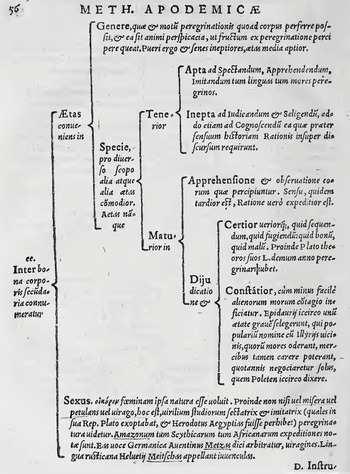 56
METH. APODEMICÆ
Genere, quæ & motũ peregrinationis quoad corpus perferre pos-
sit, & ea sit animi perspicacia, ut fructum ex peregrinatione perci
pere queat. Pueri ergo & senes ineptiores, ætas media aptior.
Ætas
conue-
niens in
Specie,
pro diuer-
so scopo
alia atque
alia ætas
cõmodior.
Aetas nã-
que
Tene-
rior
Apta ad Spectandum, Apprehendendum,
Imitandum tum linguas tum mores pere-
grinos.
Inepta ad Iudicandum & Seligendũ, ad-
do etiam ad Cognoscendũ ea quæ præter
sensuum historiam Rationis insuper dis-
cursum requirunt.
Matu-
rior in
Apprehensione & obseruatione eo-
rum quæ percipiuntur. Sensu, quidem
tardior est, Ratione uerò expeditior est.
Diju
dicatio
ne &
Certior ueriorq́;, quid sequen-
dum, quid fugiendũ: quid bonũ,
quid malũ. Proinde Plato theo-
oros suos L. demum anno pere-
grinari iubet.
Constãtior, cùm minus facilè
alienorum morum cõtagio in-
ficiatur. Epidaurij iccirco unũ
ætate grauẽ selegerunt, qui po-
pulariũ nomine cũ Illyrijs uici-
nis, quorũ mores oderant, mer-
cibus tamen carere poterant,
quotannis negociaretur solus,
quem Poleten iccirco dixere.
ee.
Inter bo-
na corpo-
ris secũda-
ria connu-
meratur
Sexus. fœminam ipsa natura esse uoluit. Proinde non nisi uel misera uel
petulans uel uirago, hoc est, uirilium studiorum sectatrix & imitatrix (quales in
sua Rep. Plato exoptabat, & Herodotus Aegyptias fuisse perhibet) peregrina-
tura uidetur. Amazonum tum Scythicarum tum Africanarum expeditiones no-
tæ sunt. Eas uoce Germanica Auentinus Metzs dici arbitratur, uiragines. Lin-
gua rusticana Heluetij Meitschas appellant iuuenculas.
D. Instru-